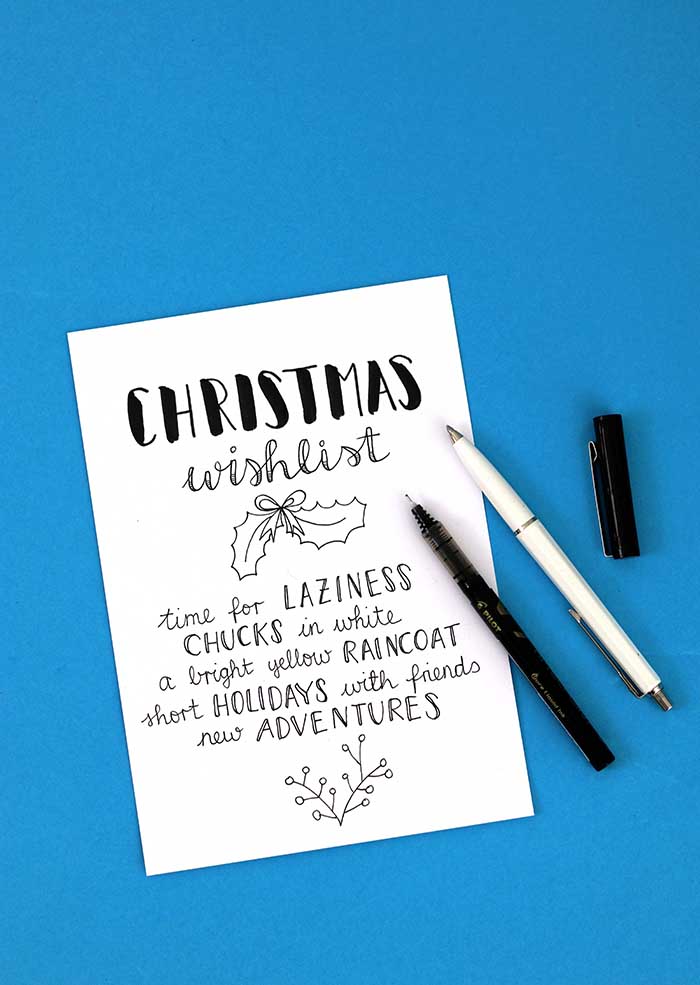 CHRISTMAS
wishlist
time for LAZINESS
CHUCKS in white
a bright yellow RAINCOAT
short HOLIDAYS with friends
new ADVENTURES
PILOT